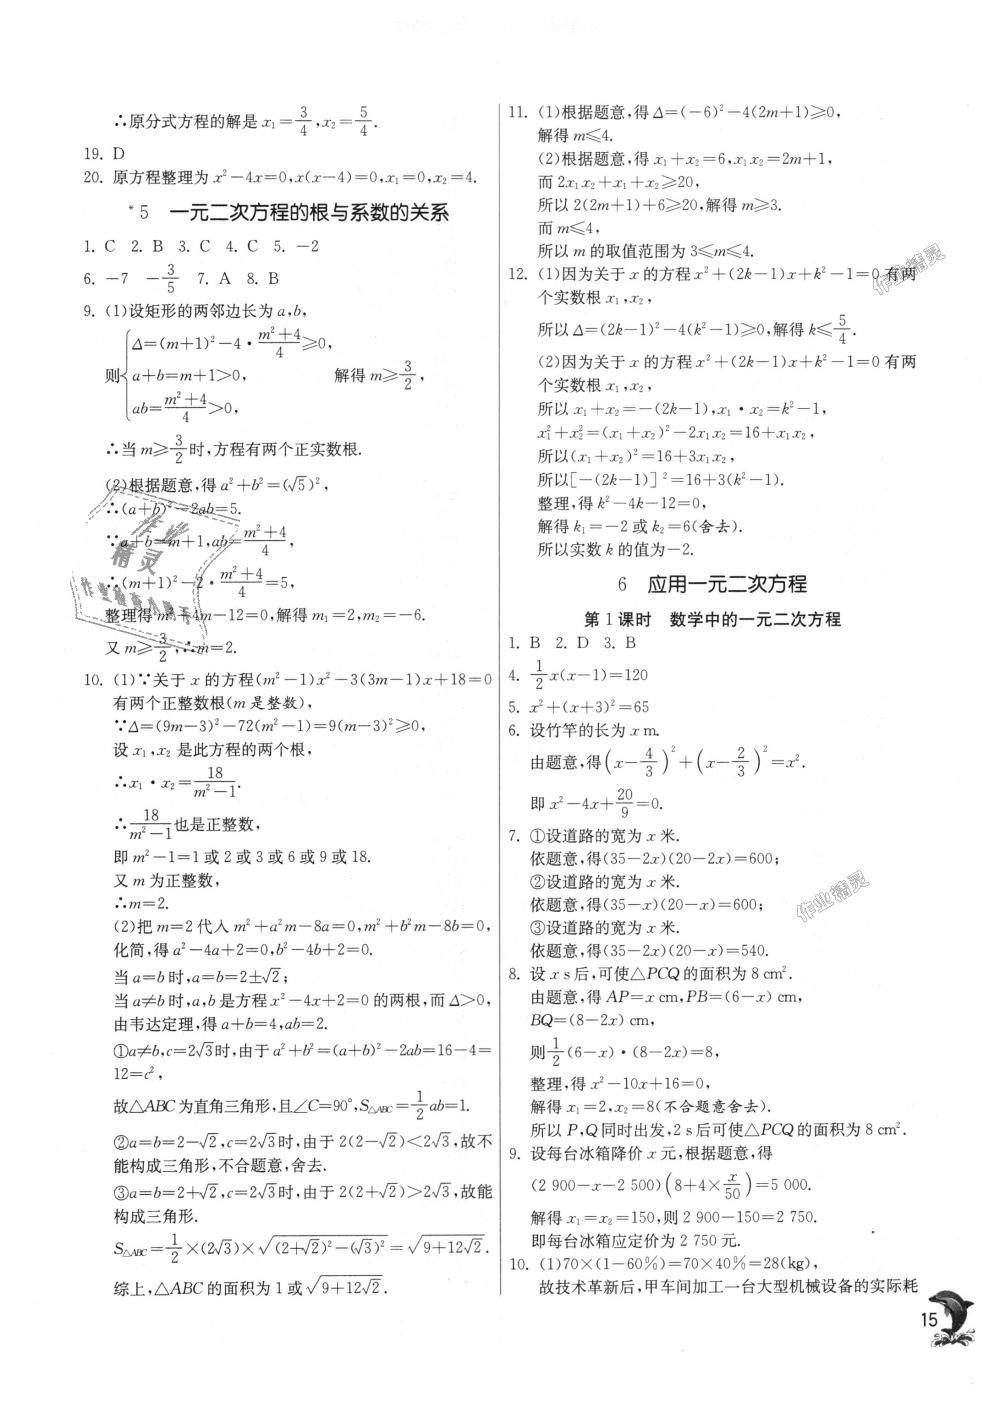 ∴原分式方程的解是 x₁=3/4,x₂=5/4.
19. D
20. 原方程整理为 x²-4x=0,x(x-4)=0,x₁=0,x₂=4.
*5 一元二次方程的根与系数的关系
1. C 2. B 3. C 4. C 5. -2
6. -7 -3/5 7. A 8. B
9. (1)设矩形的两邻边长为 a,b,
则{Δ=(m+1)²-4·(m²+4)/4≥0,
a+b=m+1>0, 解得 m≥3/2,
ab=(m²+4)/4>0,
∴当 m≥3/2时,方程有两个正实数根.
(2)根据题意,得 a²+b²=(√5)²,
∴(a+b)²-2ab=5.
∵a+b=m+1,ab=(m²+4)/4,
∴(m+1)²-2·(m²+4)/4=5,
整理得 m²+4m-12=0,解得 m₁=2,m₂=-6.
又 m≥3/2,∴m=2.
10. (1)∵关于 x 的方程(m²-1)x²-3(3m-1)x+18=0
有两个正整数根(m 是整数),
∵Δ=(9m-3)²-72(m²-1)=9(m-3)²≥0,
设 x₁,x₂ 是此方程的两个根,
∴x₁·x₂=18/(m²-1).
∴18/(m²-1)也是正整数,
即 m²-1=1 或 2 或 3 或 6 或 9 或 18.
又 m 为正整数,
∴m=2.
(2)把 m=2 代入 m²+a²m-8a=0,m²+b²m-8b=0,
化简,得 a²-4a+2=0,b²-4b+2=0.
当 a=b 时,a=b=2±√2;
当 a≠b 时,a,b 是方程 x²-4x+2=0 的两根,而 Δ>0,
由韦达定理,得 a+b=4,ab=2.
①a≠b,c=2√3时,由于 a²+b²=(a+b)²-2ab=16-4=
12=c²,
故△ABC 为直角三角形,且∠C=90°,S△ABC=1/2ab=1.
②a=b=2-√2,c=2√3时,由于 2(2-√2)<2√3,故不
能构成三角形,不合题意,舍去.
③a=b=2+√2,c=2√3时,由于 2(2+√2)>2√3,故能
构成三角形.
S△ABC=1/2×(2√3)×√((2+√2)²-(√3)²)=√(9+12√2).
综上,△ABC 的面积为 1 或√(9+12√2).
11. (1)根据题意,得 Δ=(-6)²-4(2m+1)≥0,
解得 m≤4.
(2)根据题意,得 x₁+x₂=6,x₁x₂=2m+1,
而 2x₁x₂+x₁+x₂≥20,
所以 2(2m+1)+6≥20,解得 m≥3.
而 m≤4,
所以 m 的取值范围为 3≤m≤4.
12. (1)因为关于 x 的方程 x²+(2k-1)x+k²-1=0 有两
个实数根 x₁,x₂,
所以 Δ=(2k-1)²-4(k²-1)≥0,解得 k≤5/4.
(2)因为关于 x 的方程 x²+(2k-1)x+k²-1=0 有两
个实数根 x₁,x₂,
所以 x₁+x₂=-(2k-1),x₁·x₂=k²-1,
x₁²+x₂²=(x₁+x₂)²-2x₁x₂=16+x₁x₂,
所以(x₁+x₂)²=16+3x₁x₂,
所以[-(2k-1)]²=16+3(k²-1).
整理,得 k²-4k-12=0,
解得 k₁=-2 或 k₂=6(舍去).
所以实数 k 的值为-2.
6 应用一元二次方程
第 1 课时 数学中的一元二次方程
1. B 2. D 3. B
4. 1/2x(x-1)=120
5. x²+(x+3)²=65
6. 设竹竿的长为 x m.
由题意,得(x-4/3)²+(x-2/3)²=x².
即 x²-4x+20/9=0.
7. ①设道路的宽为 x 米.
依题意,得(35-2x)(20-2x)=600;
②设道路的宽为 x 米.
依题意,得(35-x)(20-x)=600;
③设道路的宽为 x 米.
依题意,得(35-2x)(20-x)=540.
8. 设 x s 后,可使△PCQ 的面积为 8 cm².
由题意,得 AP=x cm,PB=(6-x) cm,
BQ=(8-2x) cm,
则1/2(6-x)·(8-2x)=8,
整理,得 x²-10x+16=0,
解得 x₁=2,x₂=8(不合题意舍去).
所以 P,Q 同时出发,2 s 后可使△PCQ 的面积为 8 cm².
9. 设每台冰箱降价 x 元,根据题意,得
(2 900-x-2 500)(8+4×x/50)=5 000.
解得 x₁=x₂=150,则 2 900-150=2 750.
即每台冰箱应定价为 2 750 元.
10. (1)70×(1-60%)=70×40%=28(kg),
故技术革新后,甲车间加工一台大型机械设备的实际耗
15
作业精灵
作业精灵
作业精灵
作业检查小帮手